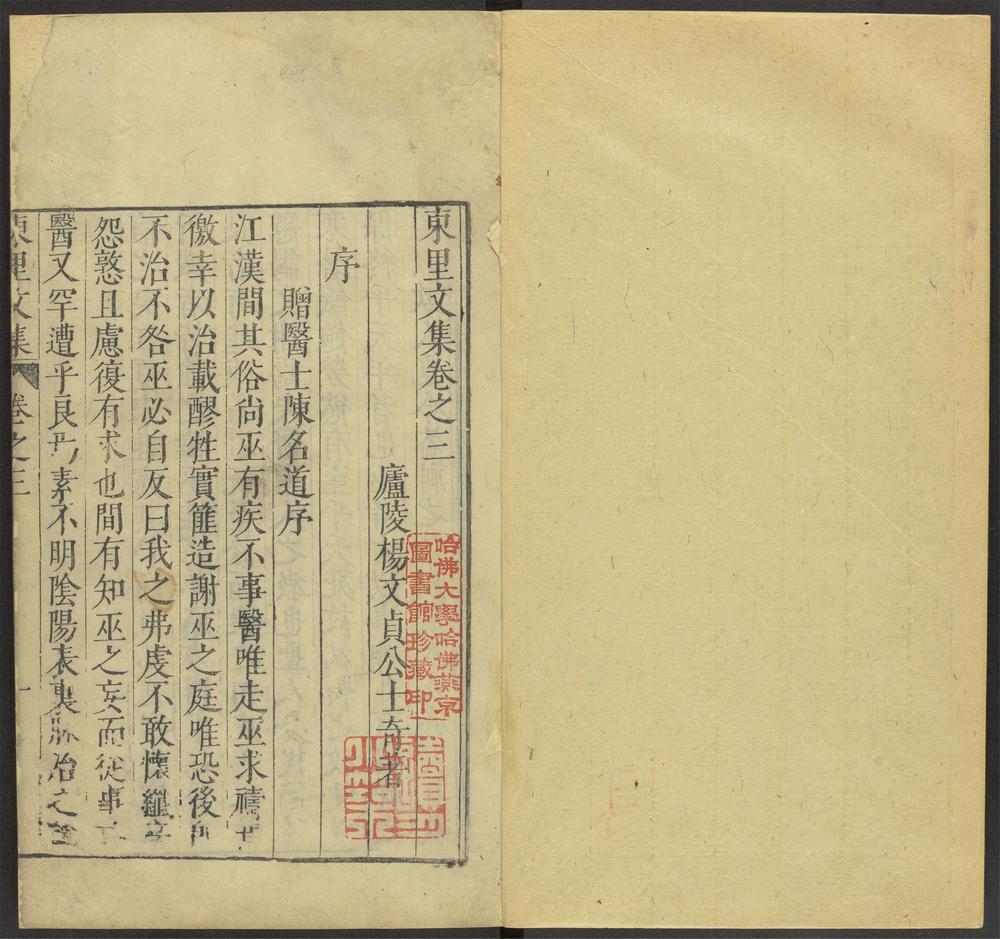 東里文集卷之三
廬陵楊文貞公士奇著
序
贈醫士陳名道序
江漢間其俗尚巫有疾不事醫唯走巫求禱
徼幸以治載醪牲實篚造謝巫之庭唯恐後
不治不咎巫必自反曰我之弗虔不敢懷纖
怨憝且慮復有求也間有知巫之妄而從事
醫又罕遭乎良素不明陰陽表裏脉治之
東里文集 卷之三 一
哈佛大學哈佛燕京
圖書館珍藏印